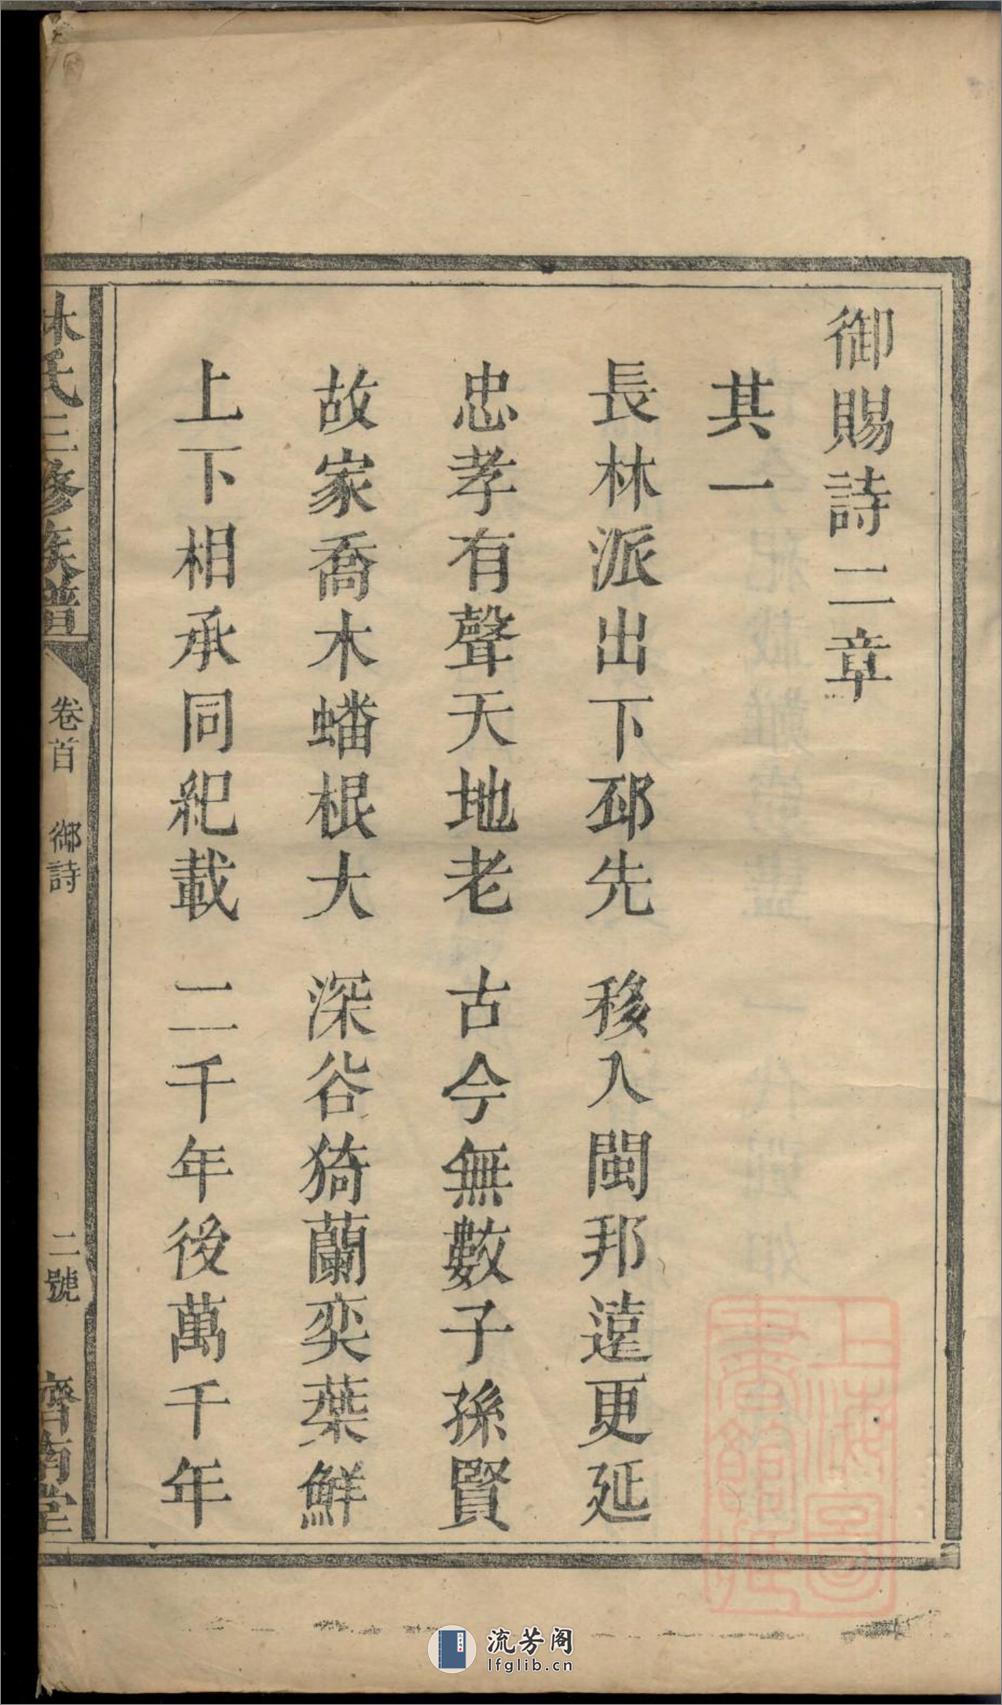 御賜詩二章
其一
長林派出下邳先　移入閩邦遠更延
忠孝有聲天地老　古今無數子孫賢
故家喬木蟠根大　深谷猗蘭奕葉鮮
上下相承同紀載　二千年後萬千年
林氏三修族譜
卷首　御詩
二號
齊南堂
上海圖書館藏
流芳阁
lfglib.cn